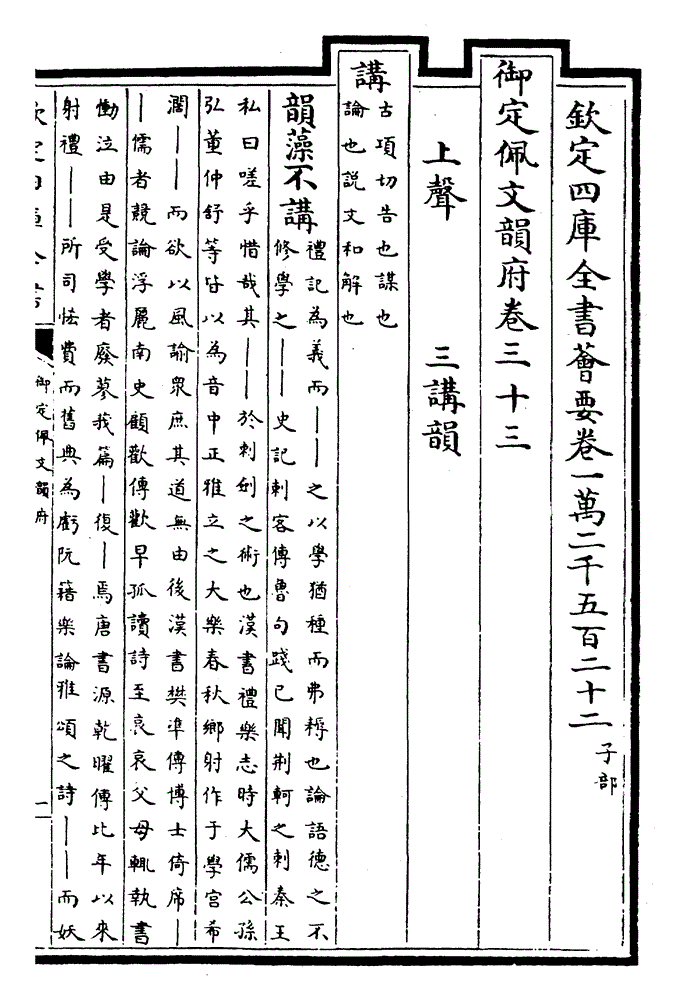 欽定四庫全書薈要卷一萬二千五百二十二 子部
御定佩文韻府卷三十三
上聲 三講韻
講
古項切告也謀也
論也説文和解也
韻藻不講
禮記為義而――之以學猶種而弗耨也論語德之不
修學之――史記刺客傳魯句踐已聞荆軻之刺秦王
私曰嗟乎惜哉其――於刺劍之術也漢書禮樂志時大儒公孫
弘董仲舒等皆以為音中正雅立之大樂春秋鄉射作于學官希
濶――而欲以風諭衆庶其道無由後漢書樊準傳博士倚席―
―儒者競論浮麗南史顧歡傳歡早孤讀詩至哀哀父母輒執書
慟泣由是受學者廢蓼莪篇―復―焉唐書源乾曜傳比年以來
射禮――所司恡費而舊典為虧阮籍樂論雅頌之詩――而妖
御定佩文韻府
一